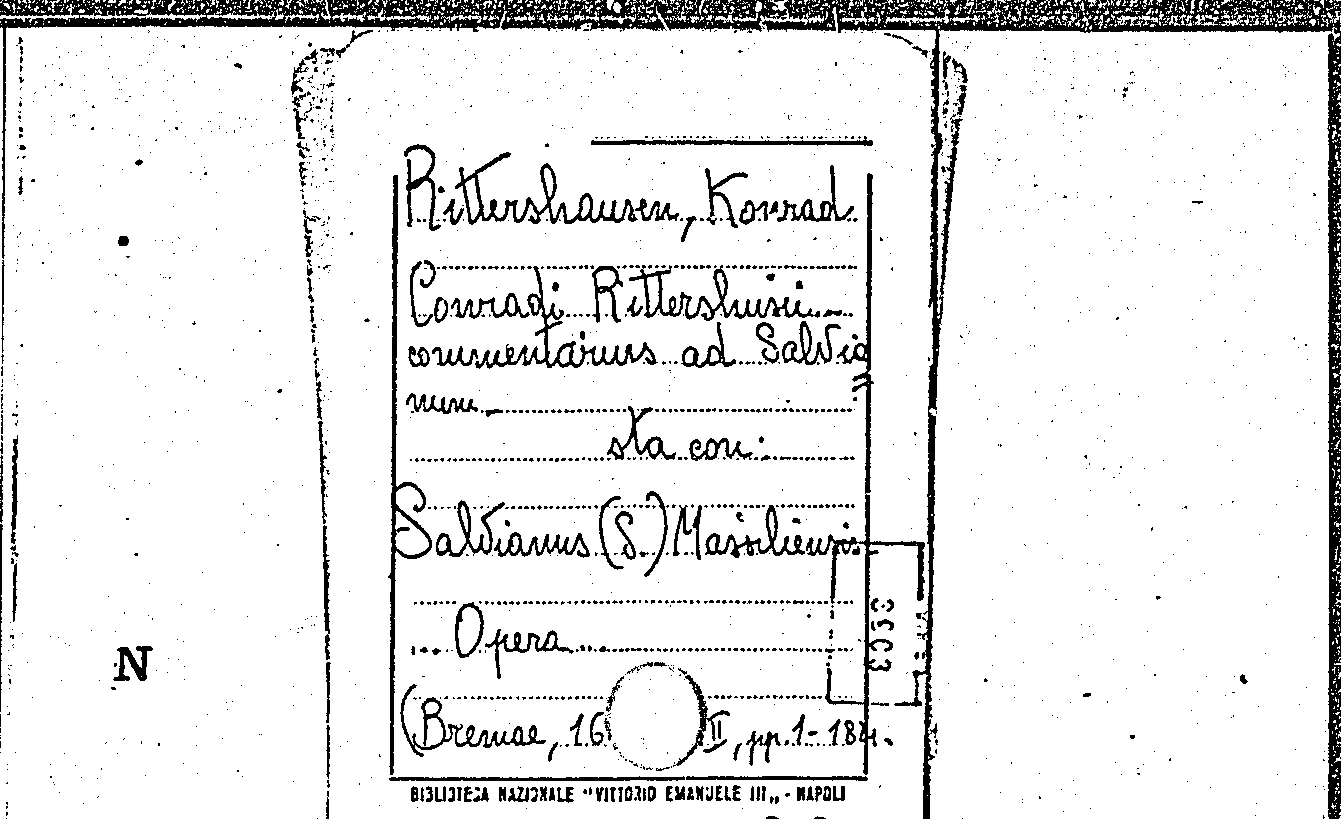 Rittershausen, Konrad.
Conradi Rittershusii
commentarius ad Salvia
num.
sta con:
Salvianus (S.) Massiliensis
Opera
(Bremae, 16 II, pp. 1-184.
BIBLIOTECA NAZIONALE "VITTORIO EMANUELE III" - NAPOLI
N